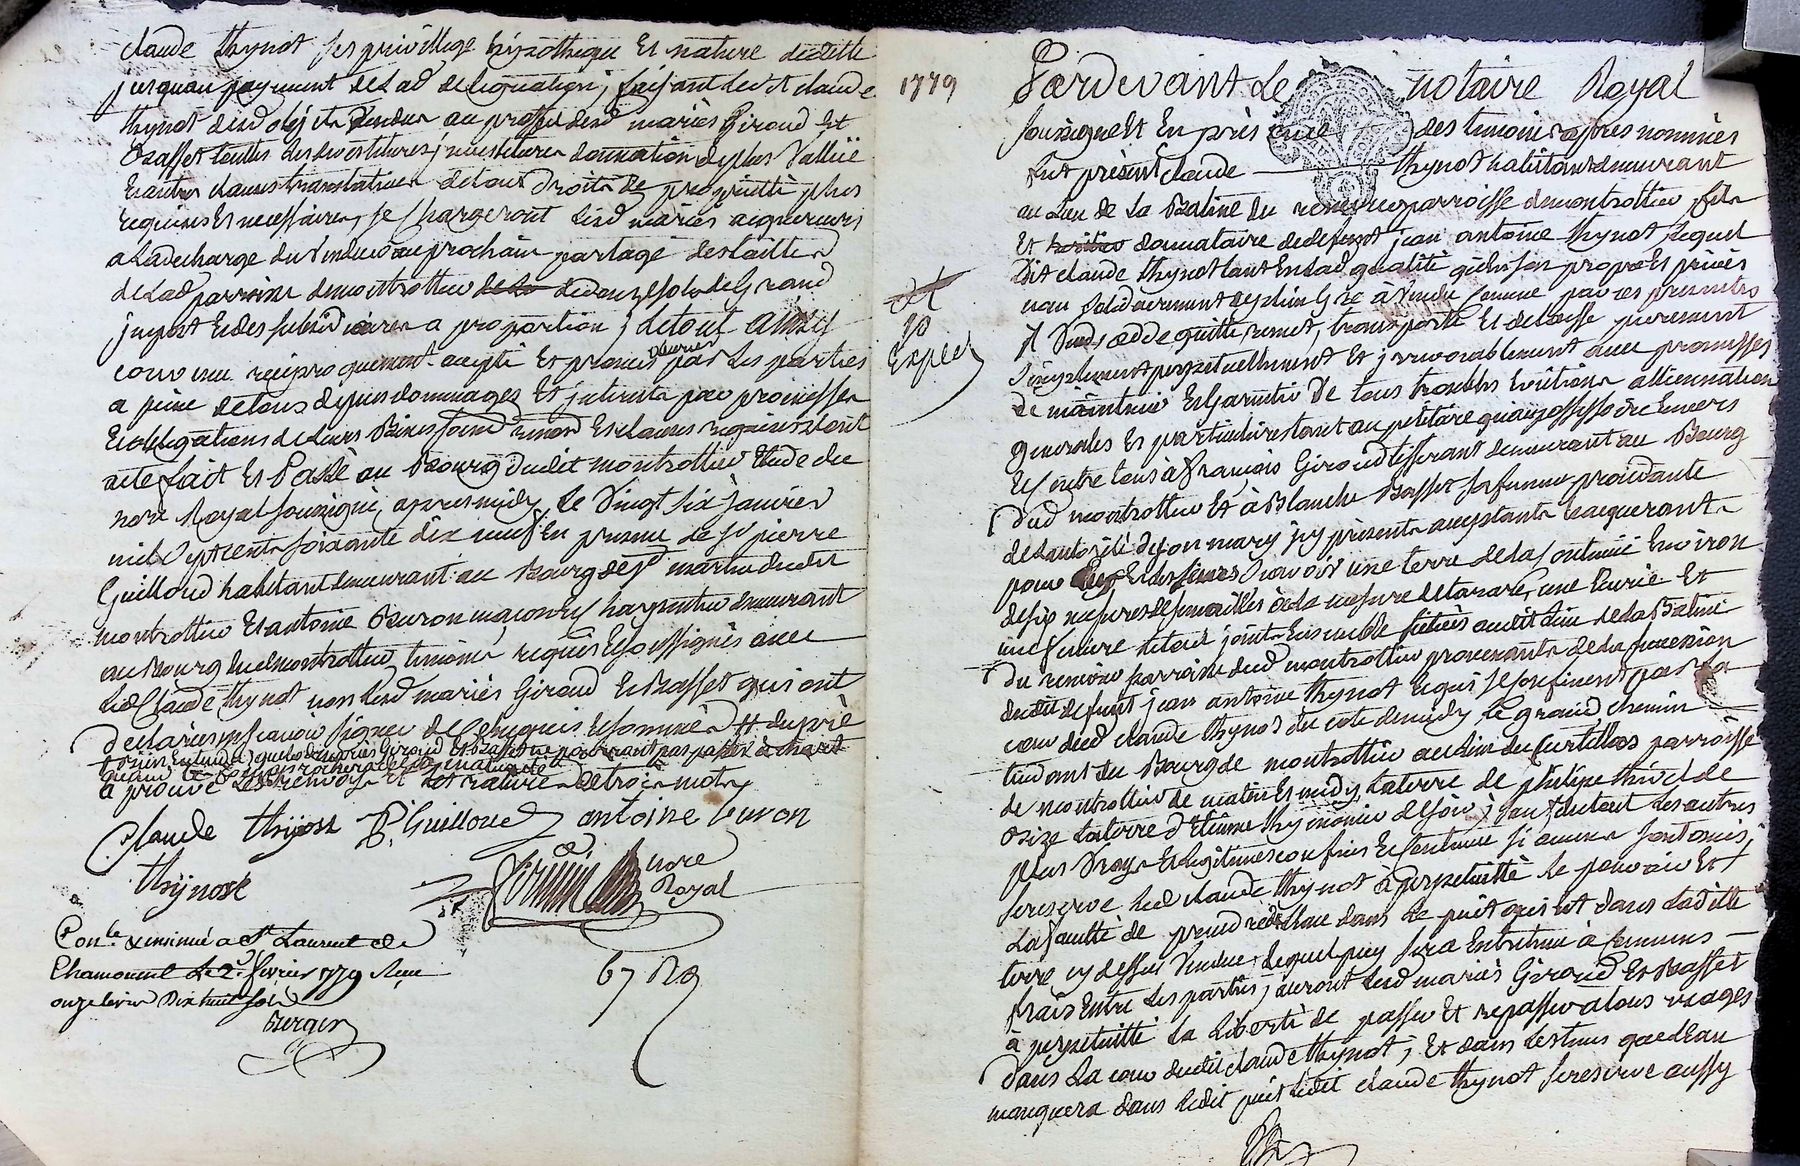 claude thynot ses privillege hypotheque Et nature dicelle
jusquau payement de lad delegation, faisant led claude
thynot desd objets vendus au proffit desd mariés Giroud Et
Basset toutes les devestitures investitures donnation de plus vallüe
Et autres clauses translatives de tout droits de proprietté plus
requises Et necessaires, se chargeront lesd mariés acquereurs
a la decharge du vendeur au prochain partage des tailles
de lad parroisse de montrottier de douze sols de Grand
impot Et des subsidiaires a proportion; de tout ainsy
convenu reciproquement accepté Et promis observer par les parties
a peine de tous depens dommages Et interests par promesses
Et obligations de leurs Biens soumi renonc Et clauses requises dont
acte fait Et Passé au Bourg dudit montrottier Etude du
nore Royal soussigné, apres midy Le Vingt six janvier
mil sept cents soixante dix neuf En presence de sr pierre
Guilloud habitant demeurant au Bourg de st martin dudit
montrottier Et antoine Buron maçon Et charpentier demeurant
au Bourg dud montrottier temoins requis Et soussignés avec
led Claude thynot non lesd mariés Giroud Et Basset qui ont
declarés ne scavoir signer de ce Enquis Et sommés
aprouvé les renvoys Et les ratures de trois mots
Claude thynost P. Guilloud antoine buron
thynost
nore
Royal
Conle Et insinué a St Laurent de
Chamousset le 2. fevrier 1779 Reçu
onze livres Dix huit sols
Burgin
67 Rg
1779
Pardevant Le notaire Royal
soussigné Et En presence des temoins apres nommés
fut present claude thynot habitant demeurant
au Lieu de La Baline du parroisse de montrottier fils
Et heritier donnataire de deffunt jean antoine thynot, Lequel
Dit claude thynot tant En lad qualité qu'En son propre Et privé
nom solidairement de plein Gré à vendu comme par ces presentes
Il vend, cedde quitte remet, transporte Et delaisse purement
simplement perpetuellement Et irrevocablement avec promesses
de maintenir Et Garantir de tous troubles Evictions alliennations
generales Et particulieres tant au petitoire qu'au possessoire Envers
Et contre tous à françois Giroud tisserant demeurant au Bourg
dud montrottier Et à Blanche Basset sa femme procedante
de l'autorité de son mary icy presents acceptants Et acquerants
pour Eux Et les leurs Sçavoir une terre de la contenue Environ
de six mesures de semailles à la mesure de tarare, une Ecurie Et
une feniere le tout joints Ensemble sittués audit Lieu de la Baline
du parroisse dud montrottier provenants de la succession
dudit deffunt jean antoine thynot Et qui se confinent par la
cour dud claude thynot du coté de midy, le grand chemin
tendant du Bourg de montrottier au lieu du Curtillas parroisse
de montrottier de matin Et midy, La terre de philipe thivel de
Bize La terre d'Etienne thynot de soir, sauf du tout les autres
plus vrays Et legitimes confins Et contenue si aucuns sont omis;
se reserve led claude thynot à perpetuitté le pouvoir Et
La faculté de prendre de l'eau dans le puit qui Est dans Laditte
terre cy dessus vendue, Lequel puy sera Entretenu à communs
frais Entre les parties, auront lesd mariés Giroud Et Basset
à perpetuitté La Liberté de passer Et repasser a tous usages
Dans La cour dudit claude thynot; Et dans les tems que l'Eau
manquera dans ledit puit ledit claude thynot se reserve aussy
Exped